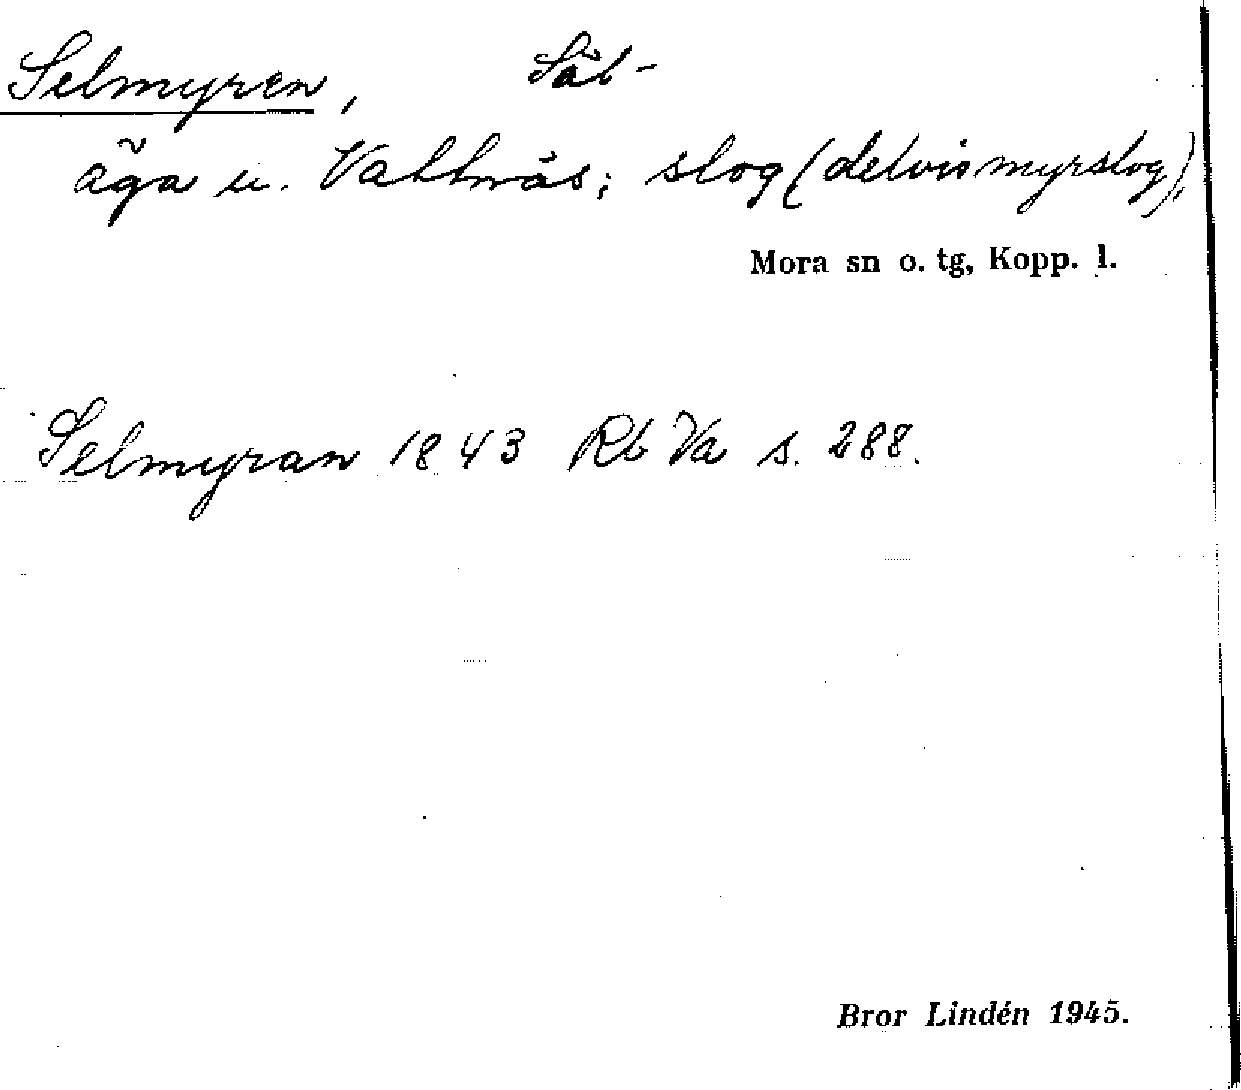 Selmyren, Säl-
äga u. Vattnäs; slog (delvis myrslog),
Mora sn o. tg, Kopp. l.
Selmyran 1843 Rb Va s. 288.
Bror Lindén 1945.